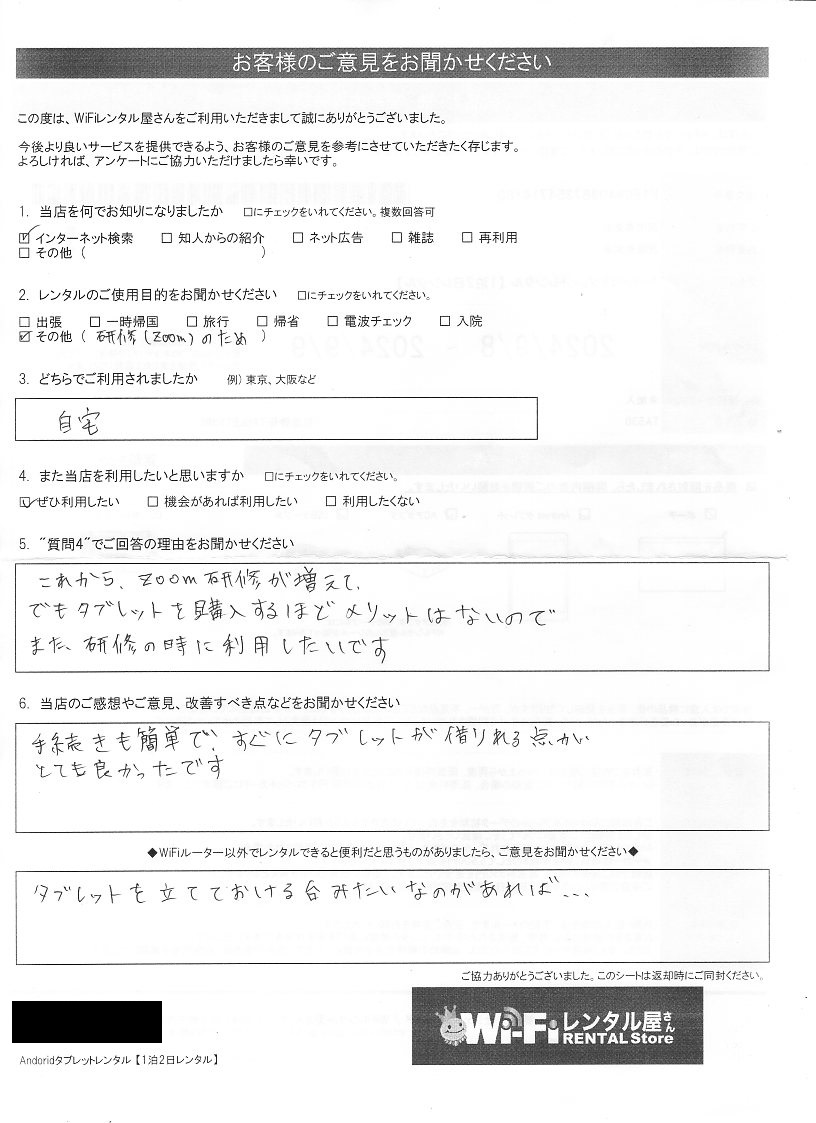 お客様のご意見をお聞かせください
この度は、WiFiレンタル屋さんをご利用いただきまして誠にありがとうございました。
今後より良いサービスを提供できるよう、お客様のご意見を参考にさせていただきたく存じます。
よろしければ、アンケートにご協力いただけましたら幸いです。
1. 当店を何でお知りになりましたか □にチェックをいれてください。複数回答可
☑インターネット検索 □ 知人からの紹介 □ ネット広告 □ 雑誌 □ 再利用
□ その他 ( )
2. レンタルのご使用目的をお聞かせください □にチェックをいれてください。
□ 出張 □ 一時帰国 □ 旅行 □ 帰省 □ 電波チェック □ 入院
☑ その他 ( 研修(Zoom)のため )
3. どちらでご利用されましたか 例) 東京、大阪など
自宅
4. また当店を利用したいと思いますか □にチェックをいれてください。
☑ぜひ利用したい □ 機会があれば利用したい □ 利用したくない
5. "質問4"でご回答の理由をお聞かせください
これから、Zoom研修が増えて、
でもタブレットを購入するほどメリットはないので
また、研修の時に利用したいです
6. 当店のご感想やご意見、改善すべき点などをお聞かせください
手続きも簡単で、すぐにタブレットが借りれる点が
とても良かったです
◆WiFiルーター以外でレンタルできると便利だと思うものがありましたら、ご意見をお聞かせください◆
タブレットを立てておける台みたいなのがあれば...
ご協力ありがとうございました。このシートは返却時にご同封ください。
Wi-Fiレンタル屋さん
RENTAL Store
Andoridタブレットレンタル【1泊2日レンタル】